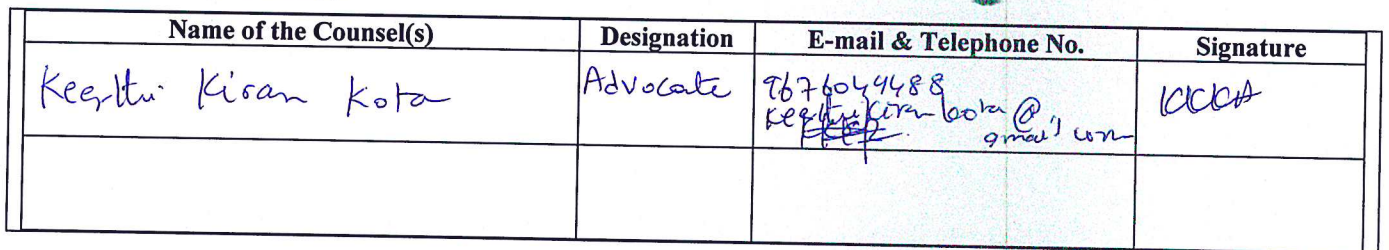 Name of the Counsel(s) Designation E-mail & Telephone No. Signature
Keerthi Kiran Kota Advocate 9676049488
Keerthikirankota@
gmail.com